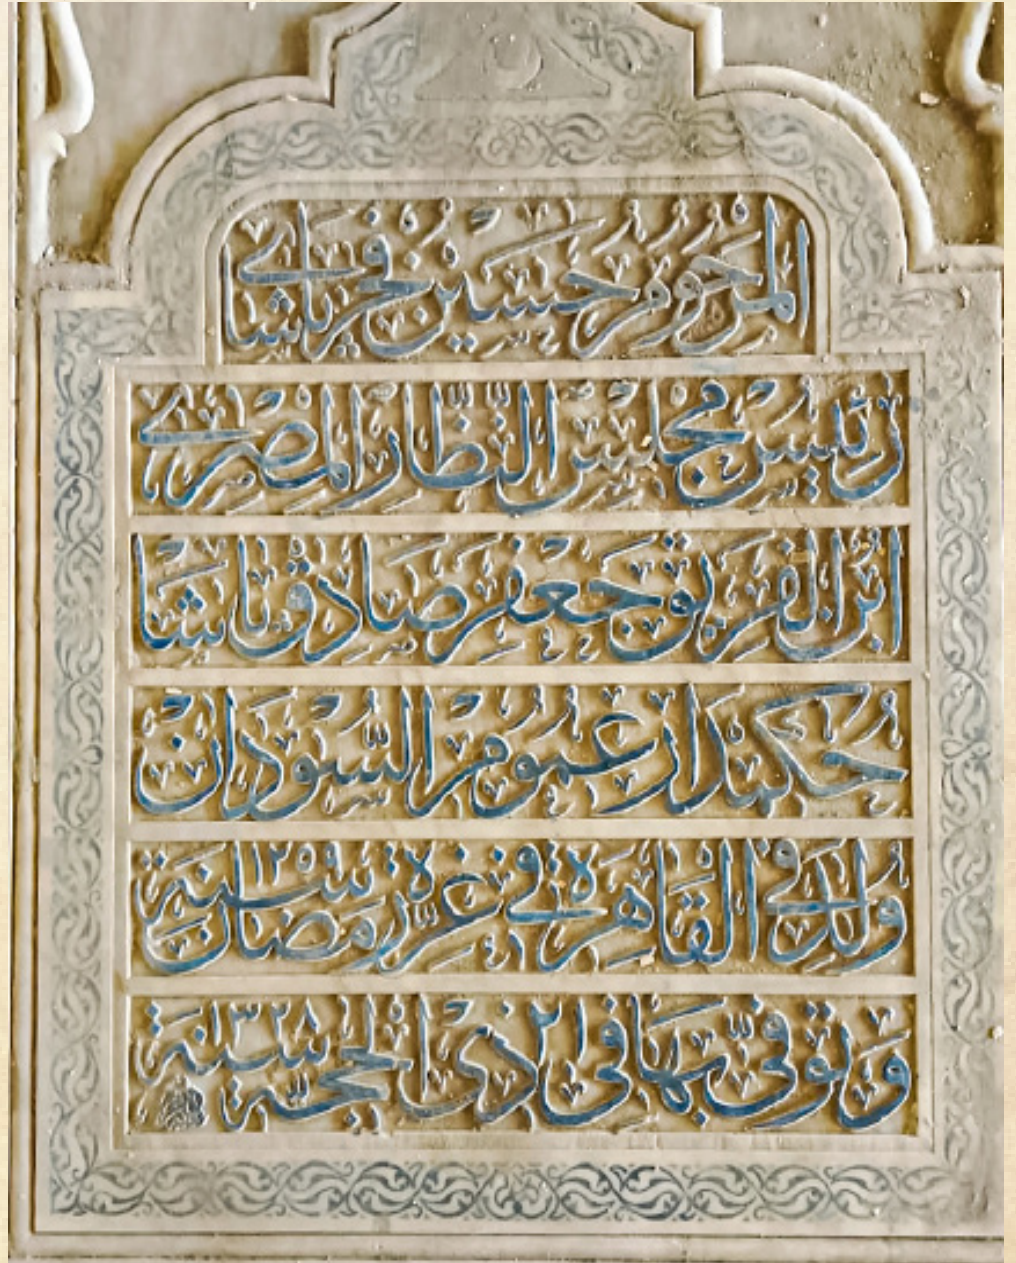 المرحوم حسين فخرى باشا
رئيس مجلس النظار المصرى
ابن الفريق جعفر صادق باشا
حكمدار عموم السودان
ولد فى القاهرة فى غرة رمضان سنة ١٢٥٩
وتوفى بها فى ٢١ ذى الحجة سنة ١٣٢٨